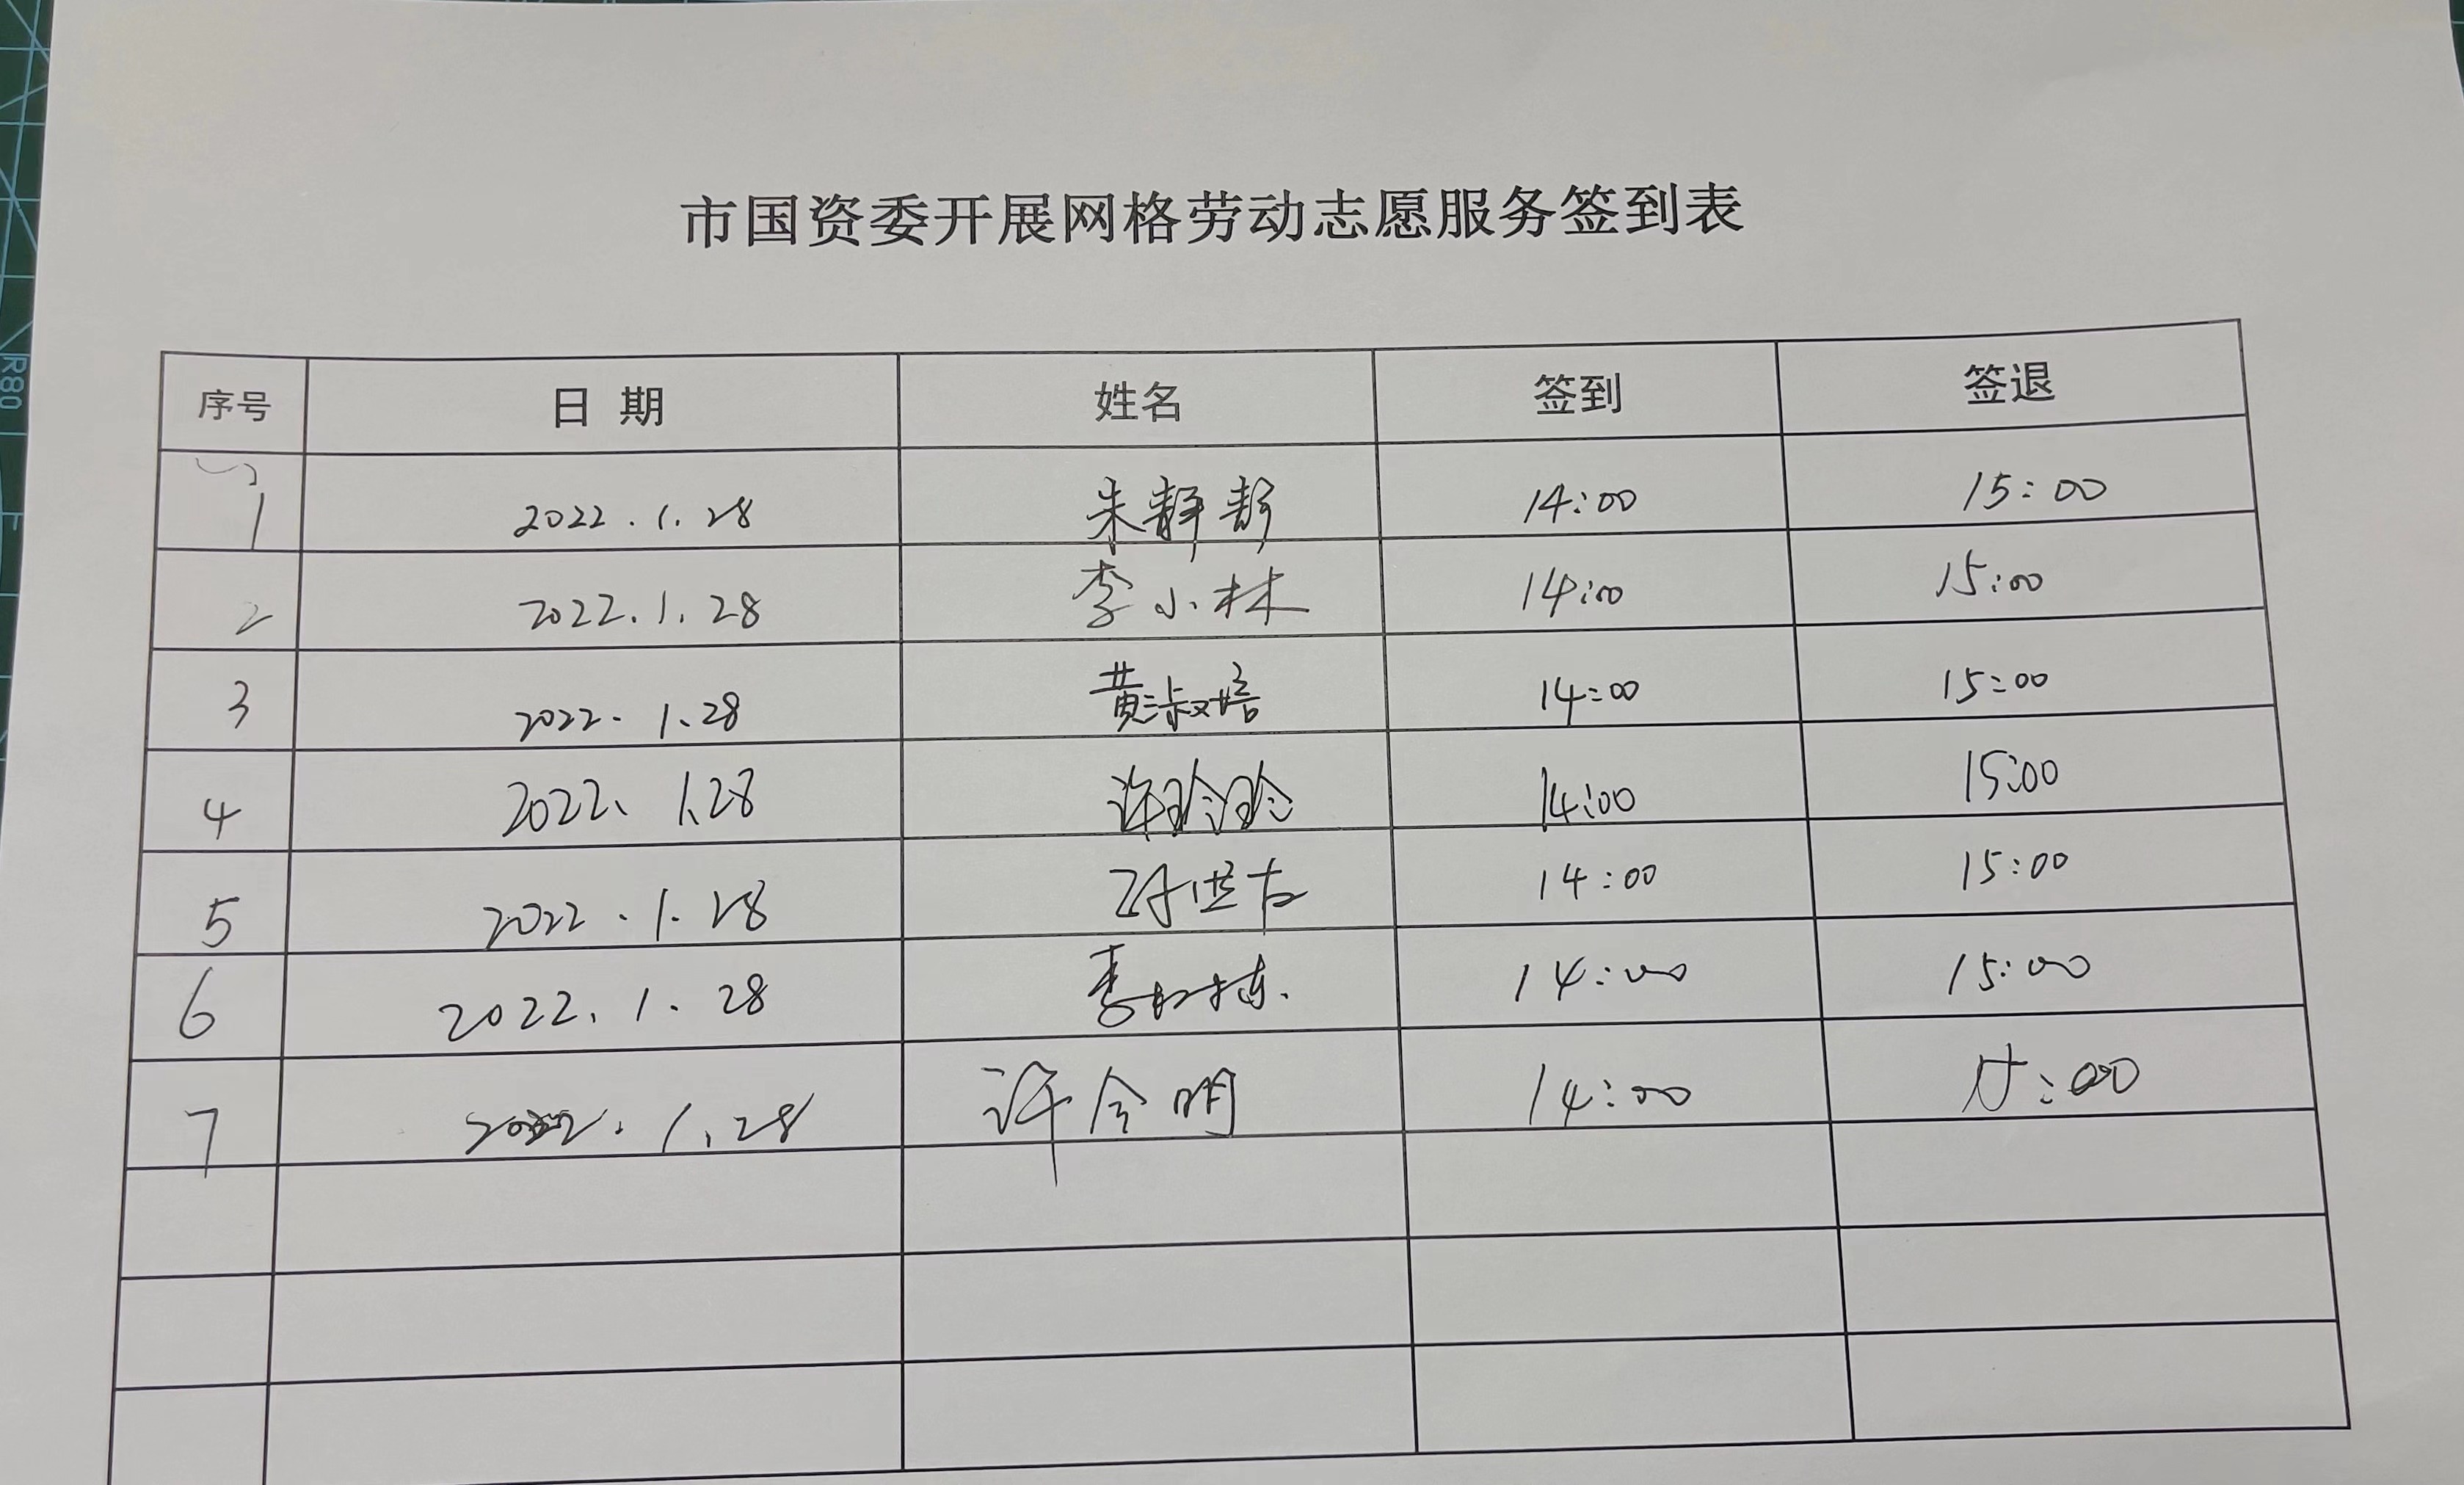 市国资委开展网格劳动志愿服务签到表
序号 日 期 姓名 签到 签退
1 2022.1.28 朱静静 14:00 15:00
2 2022.1.28 李小林 14:00 15:00
3 2022.1.28 黄淑培 14:00 15:00
4 2022.1.28 许玲玲 14:00 15:00
5 2022.1.28 14:00 15:00
6 2022.1.28 14:00 15:00
7 2022.1.28 许令明 14:00 15:00
R80